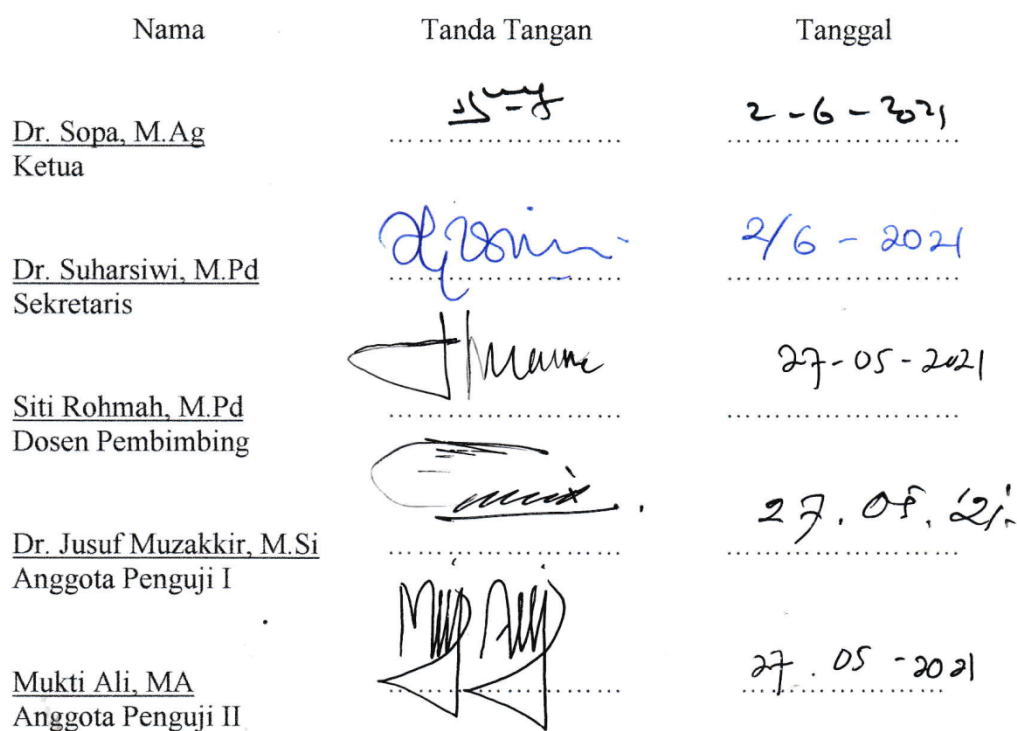 Nama Tanda Tangan Tanggal
2-6-2021
Dr. Sopa, M.Ag
Ketua
2/6 - 2021
Dr. Suharsiwi, M.Pd
Sekretaris
27-05-2021
Siti Rohmah, M.Pd
Dosen Pembimbing
27.05.'21.
Dr. Jusuf Muzakkir, M.Si
Anggota Penguji I
27.05-2021
Mukti Ali, MA
Anggota Penguji II